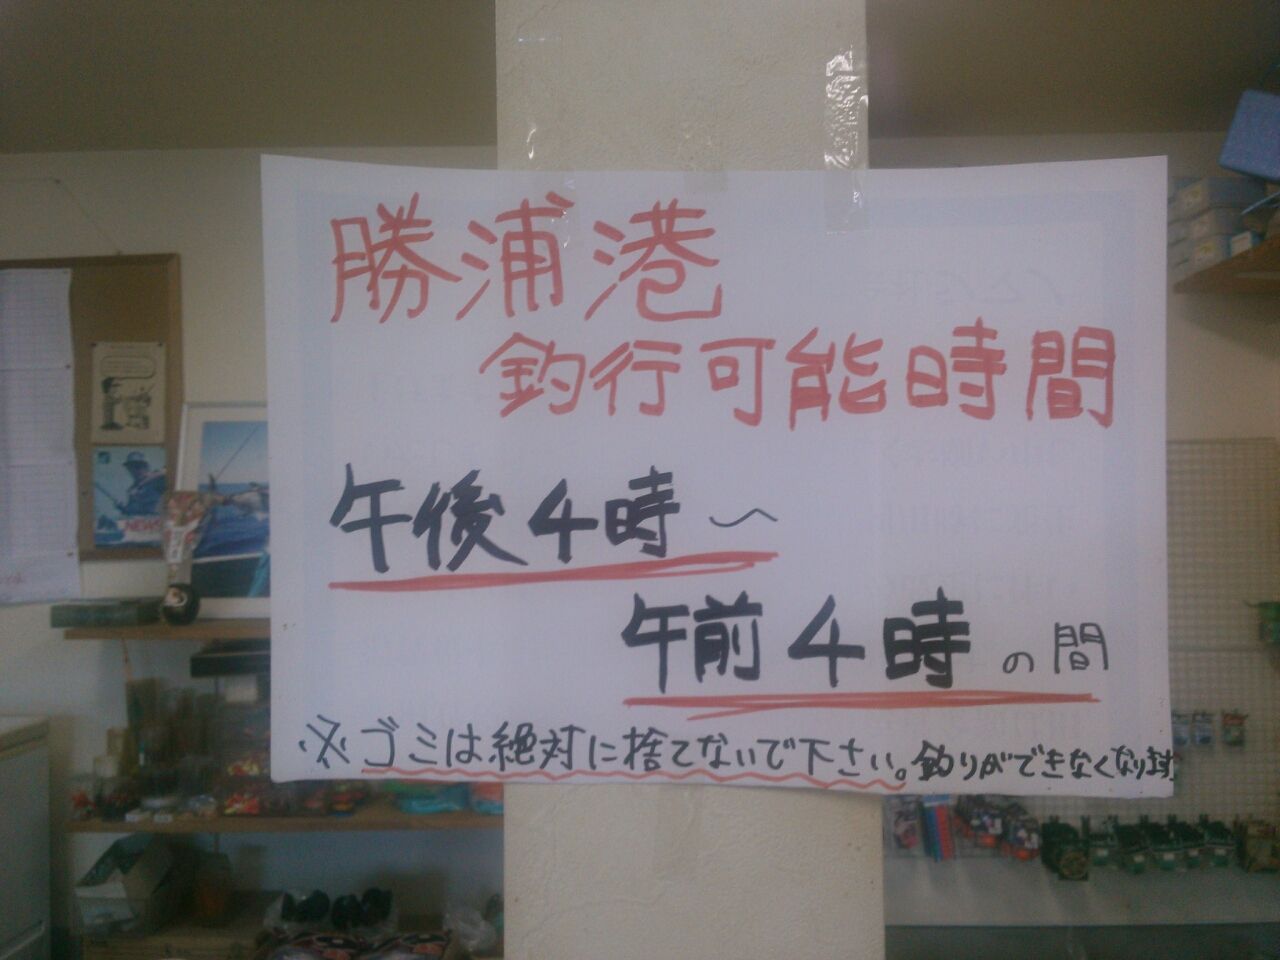 勝浦港
釣行可能時間
午後4時〜
午前4時の間
※ゴミは絶対に捨てないで下さい。釣りができなくなります
NEWS